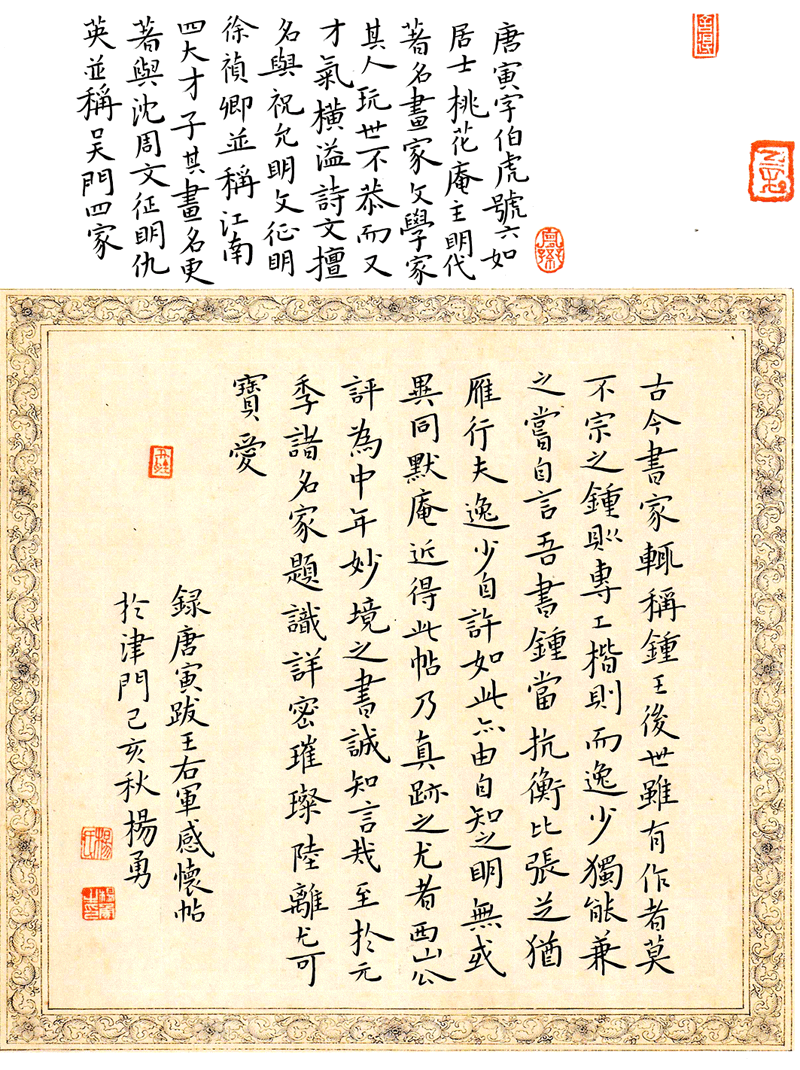 唐寅字伯虎號六如
居士桃花庵主明代
著名畫家文學家
其人玩世不恭而又
才氣橫溢詩文擅
名與祝允明文征明
徐禎卿並稱江南
四大才子其畫名更
著與沈周文征明仇
英並稱吴門四家
古今書家輒稱鍾王後世雖有作者莫
不宗之鍾則專工楷則而逸少獨能兼
之嘗自言吾書鍾當抗衡比張芝猶
雁行夫逸少自許如此亦由自知之明無或
異同默庵近得此帖乃真跡之尤者西山公
評為中年妙境之書誠知言哉至於元
季諸名家題識詳密璀璨陸離尤可
寶愛
録唐寅跋王右軍感懷帖
於津門己亥秋楊勇